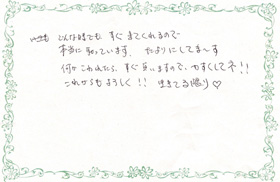 いつも どんな時でも すぐ きてくれるので
本当に 助かっています。たよりにしてま〜す
何か こわれたら、すぐ 言いますので、やすくしてネ!!
これからも よろしく!! 生きてる限り♡